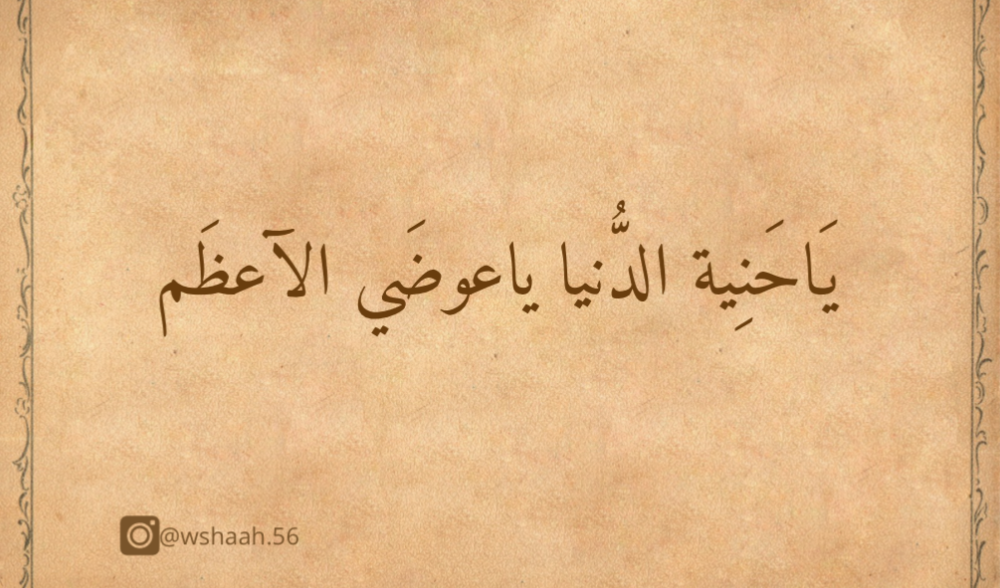 يَاحَنِية الدُّنيا ياعوضَي الآعظَم
@wshaah.56